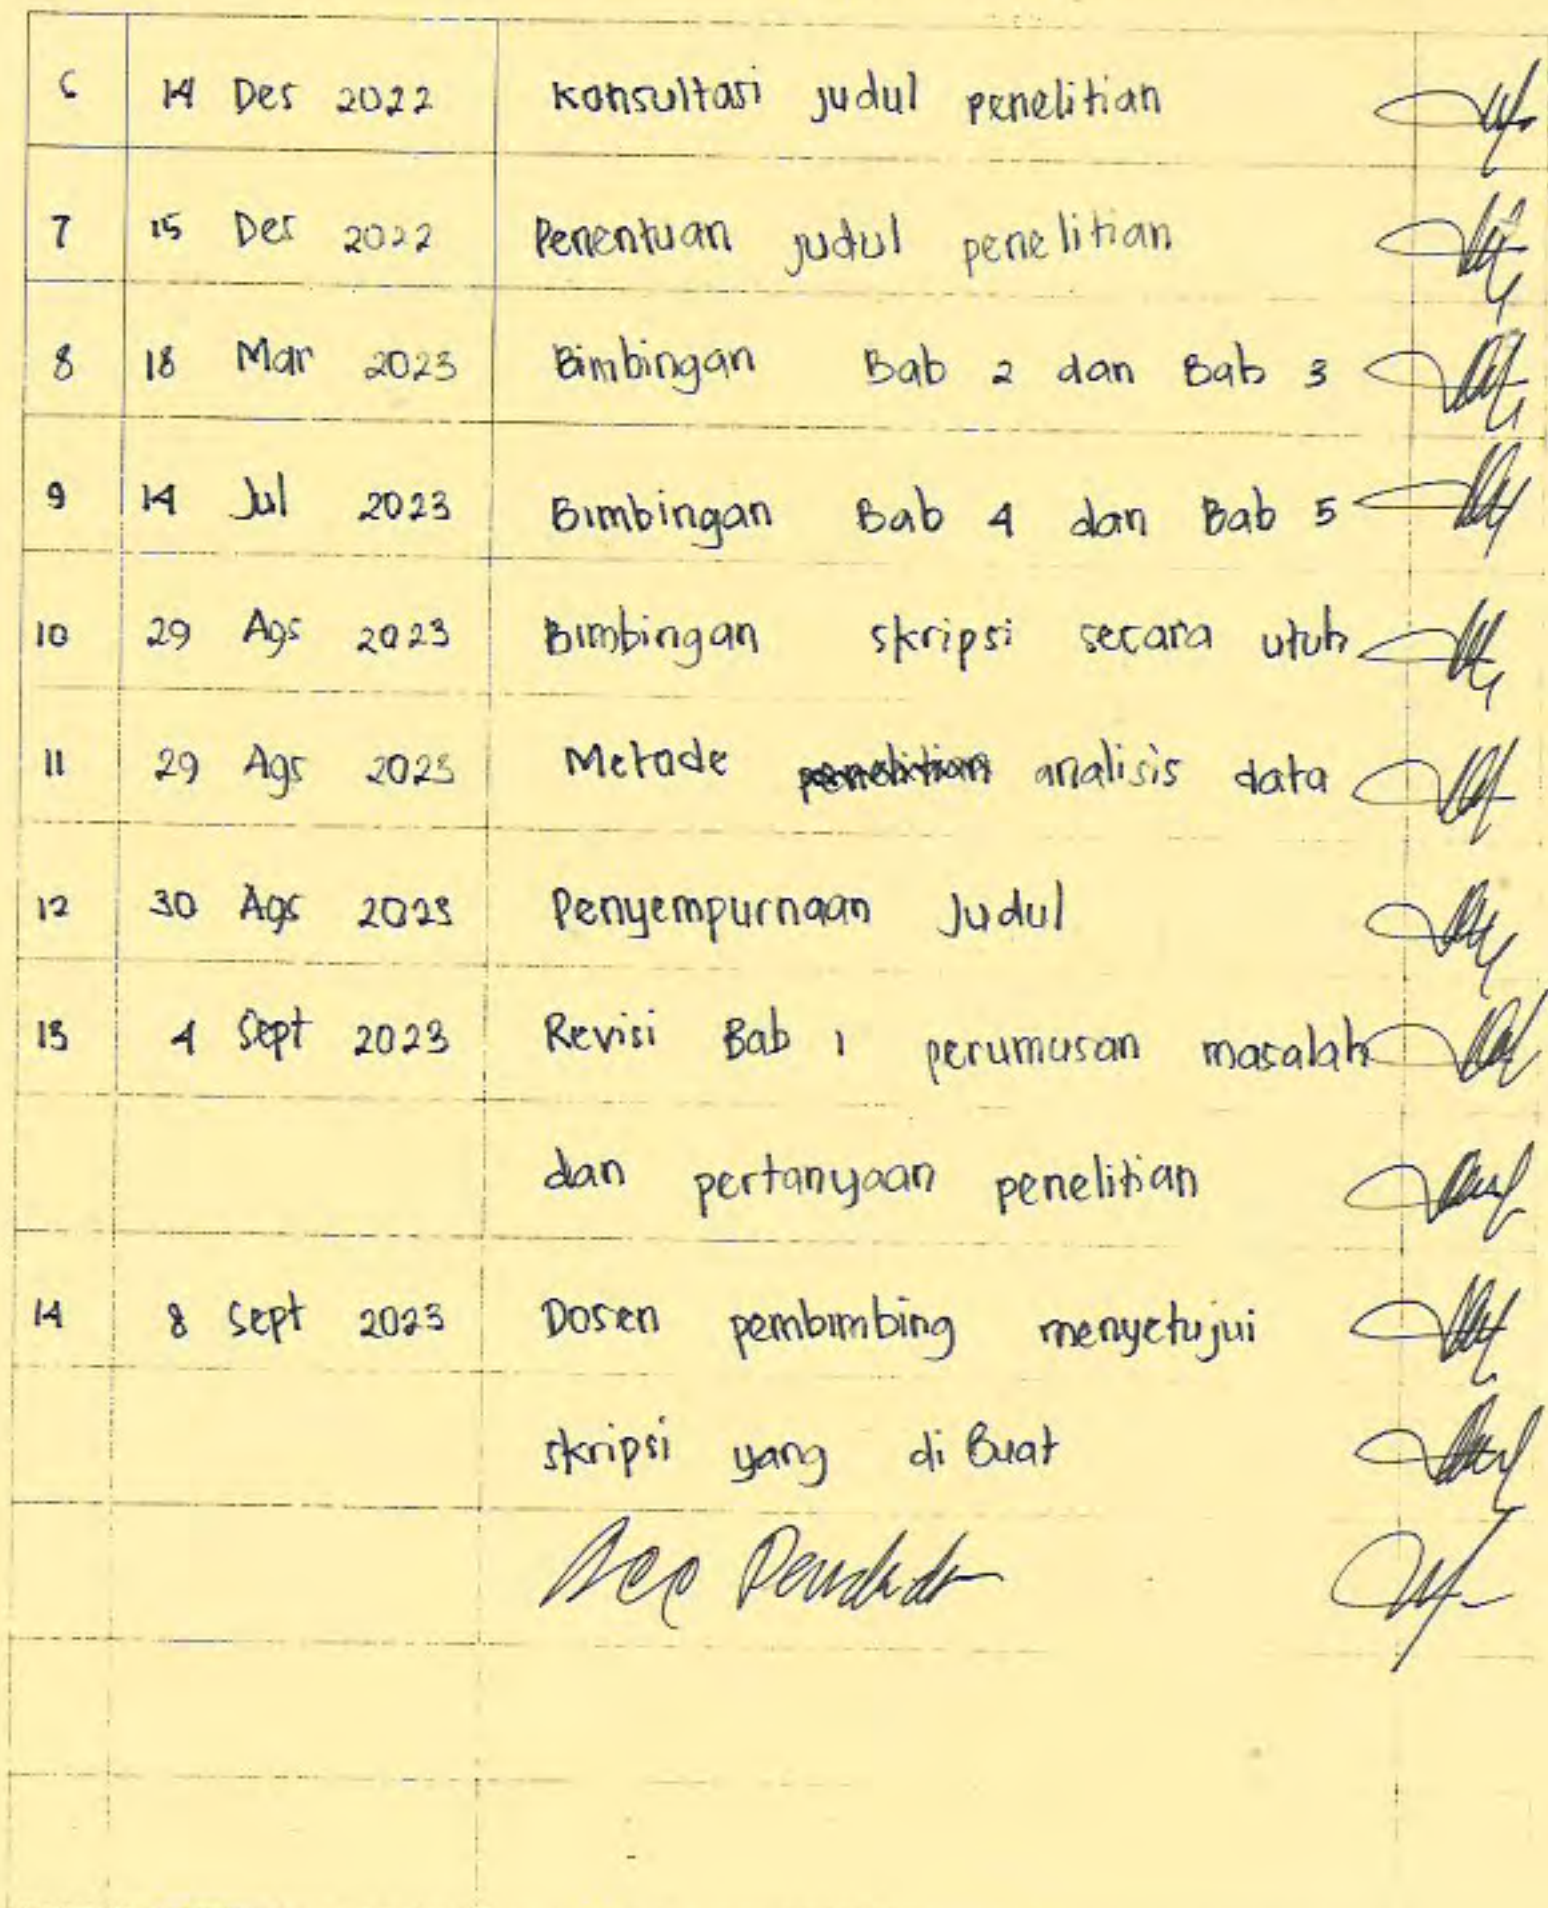 6 14 Des 2022 Konsultasi judul penelitian
7 15 Des 2022 Penentuan judul penelitian
8 18 Mar 2023 Bimbingan Bab 2 dan Bab 3
9 14 Jul 2023 Bimbingan Bab 4 dan Bab 5
10 29 Ags 2023 Bimbingan skripsi secara utuh
11 29 Ags 2023 Metode penelitian analisis data
12 30 Ags 2023 Penyempurnaan Judul
13 4 Sept 2023 Revisi Bab 1 perumusan masalah
dan pertanyaan penelitian
14 8 Sept 2023 Dosen pembimbing menyetujui
skripsi yang di Buat
Acc